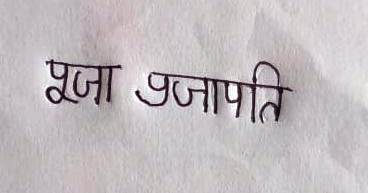 पूजा प्रजापति